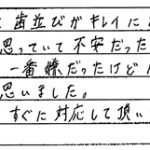 歯並びがキレイに
思っていて不安だった
一番嫌だったけど
思いました。
すぐに対応して頂い